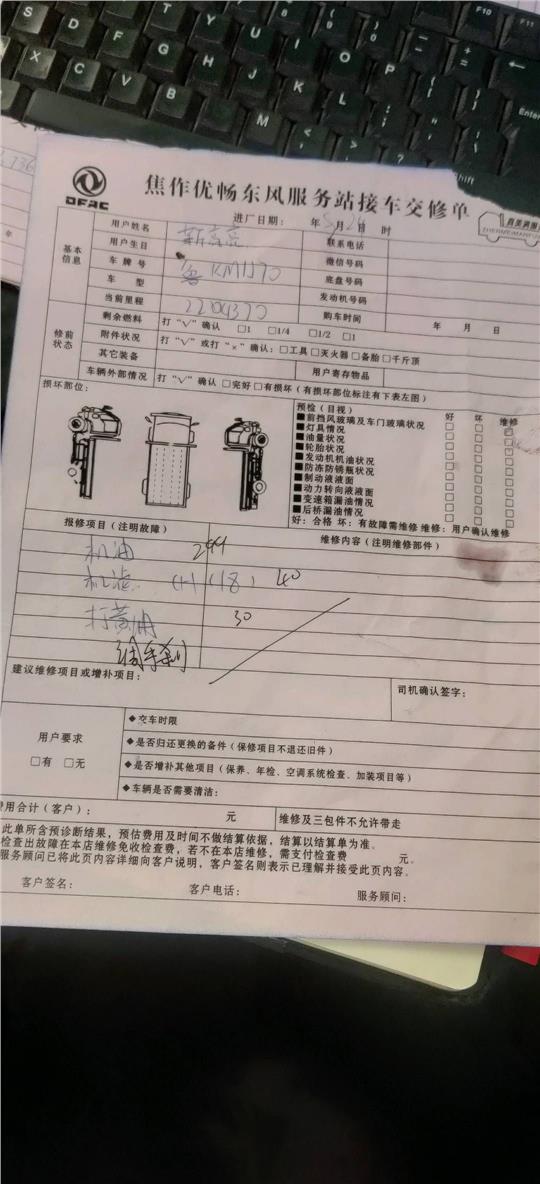 DFAC
焦作优畅东风服务站接车交修单
进厂日期： 年 5月24日 时
基本信息
用户姓名 联系电话
用户生日 微信号码
车牌号 鲁KM1J70 底盘号码
车型 发动机号码
当前里程 2204370 购车时间 年 月 日
修前状态
剩余燃料 打“√”确认 □1 □1/4 □1/2 □1
附件状况 打“√”或打“×”确认：□工具□灭火器□备胎□千斤顶
其它装备 用户寄存物品
车辆外部情况 打“√”确认 □完好□有损坏（有损坏部位标注有下表左图）
损坏部位：
预检（目视） 好 坏 维修
■前挡风玻璃及车门玻璃状况
■灯具情况
■油量状况
■轮胎状况
■发动机机油状况
■防冻防锈瓶状况
■制动液液面
■动力转向液液面
■变速箱漏油情况
■后桥漏油情况
好：合格 坏：有故障需维修 维修：用户确认维修
报修项目（注明故障） 维修内容（注明维修部件）
机油 244
机滤 40
打黄油 30
调手刹
建议维修项目或增补项目：
司机确认签字：
用户要求
□有 □无
◆交车时限
◆是否归还更换的备件（保修项目不退还旧件）
◆是否增补其他项目（保养、年检、空调系统检查、加装项目等）
◆车辆是否需要清洁：
费用合计（客户）： 元 维修及三包件不允许带走
此单所含预诊断结果，预估费用及时间不做结算依据，结算以结算单为准。
检查出故障在本店维修免收检查费，若不在本店维修，需支付检查费 元。
服务顾问已将此页内容详细向客户说明，客户签名则表示已理解并接受此页内容。
客户签名： 客户电话： 服务顾问：